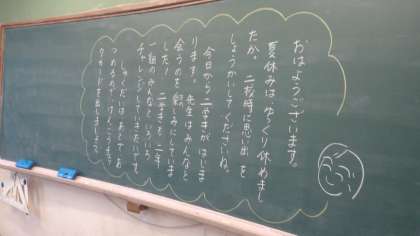 おはようございます。
夏休みはゆっくり休めまし
たか。二校時に思い出を
しょうかいしてくださいね。
今日から二学きがはじま
ります。先生はみんなと
会うのを楽しみにしていま
した！二学きも二年
一組のみんなといろいろ
チャレンジしていきたいです。
しゅくだいはあとであ
つめるので
を出しましょう。